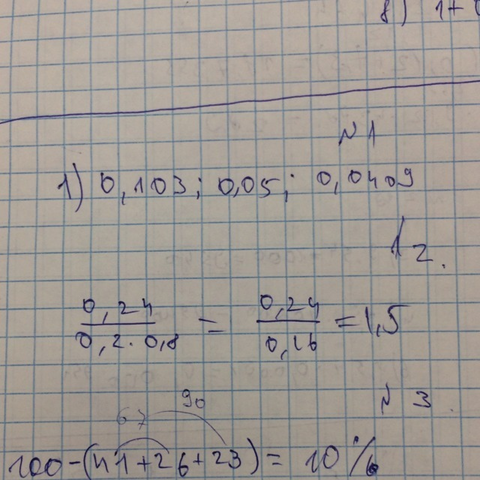 8) 1+
№1
1) 0,103; 0,05; 0,0409
2.
0,24/0,2·0,8 = 0,24/0,16 = 1,5
№3
67 90
100-(41+26+23)= 10%